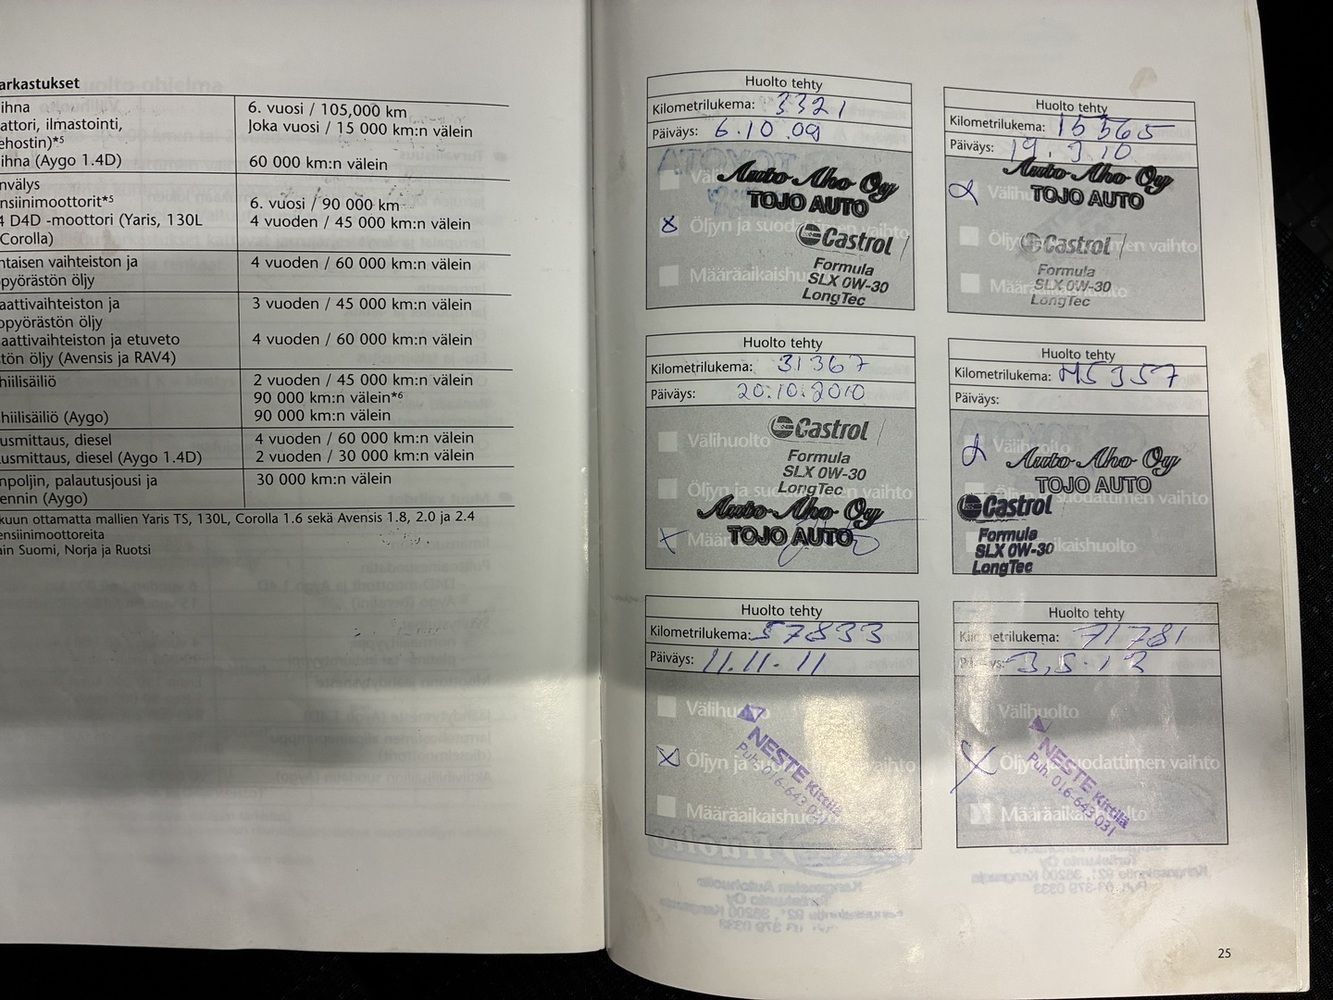 arkastukset
ihna
attori, ilmastointi,
ehostin)*5
ihna (Aygo 1.4D)
6. vuosi / 105,000 km
Joka vuosi / 15 000 km:n välein
60 000 km:n välein
nvälys
nsiinimoottorit*5
4 D4D -moottori (Yaris, 130L
Corolla)
6. vuosi / 90 000 km
4 vuoden / 45 000 km:n välein
ntaisen vaihteiston ja
opyörästön öljy
4 vuoden / 60 000 km:n välein
aattivaihteiston ja
opyörästön öljy
aattivaihteiston ja etuveto
tön öljy (Avensis ja RAV4)
3 vuoden / 45 000 km:n välein
4 vuoden / 60 000 km:n välein
hiilisäiliö
hiilisäiliö (Aygo)
2 vuoden / 45 000 km:n välein
90 000 km:n välein*6
90 000 km:n välein
usmittaus, diesel
usmittaus, diesel (Aygo 1.4D)
4 vuoden / 60 000 km:n välein
2 vuoden / 30 000 km:n välein
npoljin, palautusjousi ja
ennin (Aygo)
30 000 km:n välein
kuun ottamatta mallien Yaris TS, 130L, Corolla 1.6 sekä Avensis 1.8, 2.0 ja 2.4
ensiinimoottoreita
ain Suomi, Norja ja Ruotsi
Huolto tehty
Kilometrilukema: 3321
Päiväys: 6.10.09
Auto Aho Oy
TOJO AUTO
Öljyn ja suodattimen vaihto
Castrol
Määräaikaishu
Formula
SLX 0W-30
LongTec
Huolto tehty
Kilometrilukema: 15565
Päiväys: 19.3.10
Auto Aho Oy
Välihu
TOJO AUTO
Castrol
Formula
SLX 0W-30
LongTec
Huolto tehty
Kilometrilukema: 31367
Päiväys: 20.10.2010
Castrol
Välihuolto
Formula
SLX 0W-30
LongTec
Auto Aho Oy
TOJO AUTO
Huolto tehty
Kilometrilukema: 45357
Päiväys:
Välihuolto
Auto Aho Oy
TOJO AUTO
Castrol
Formula
SLX 0W-30
LongTec
Huolto tehty
Kilometrilukema: 57833
Päiväys: 11.11.11
Välihuolto
Öljyn ja suodattimen vaihto
Määräaikaishuo
NESTE Kittilä
Puh. 016-643 031
Huolto tehty
Kilometrilukema: 71781
Päiväys: 3.5.12
Välihuolto
Öljyn ja suodattimen vaihto
Määräaikaishuolto
NESTE Kittilä
Puh. 016-643 031
25